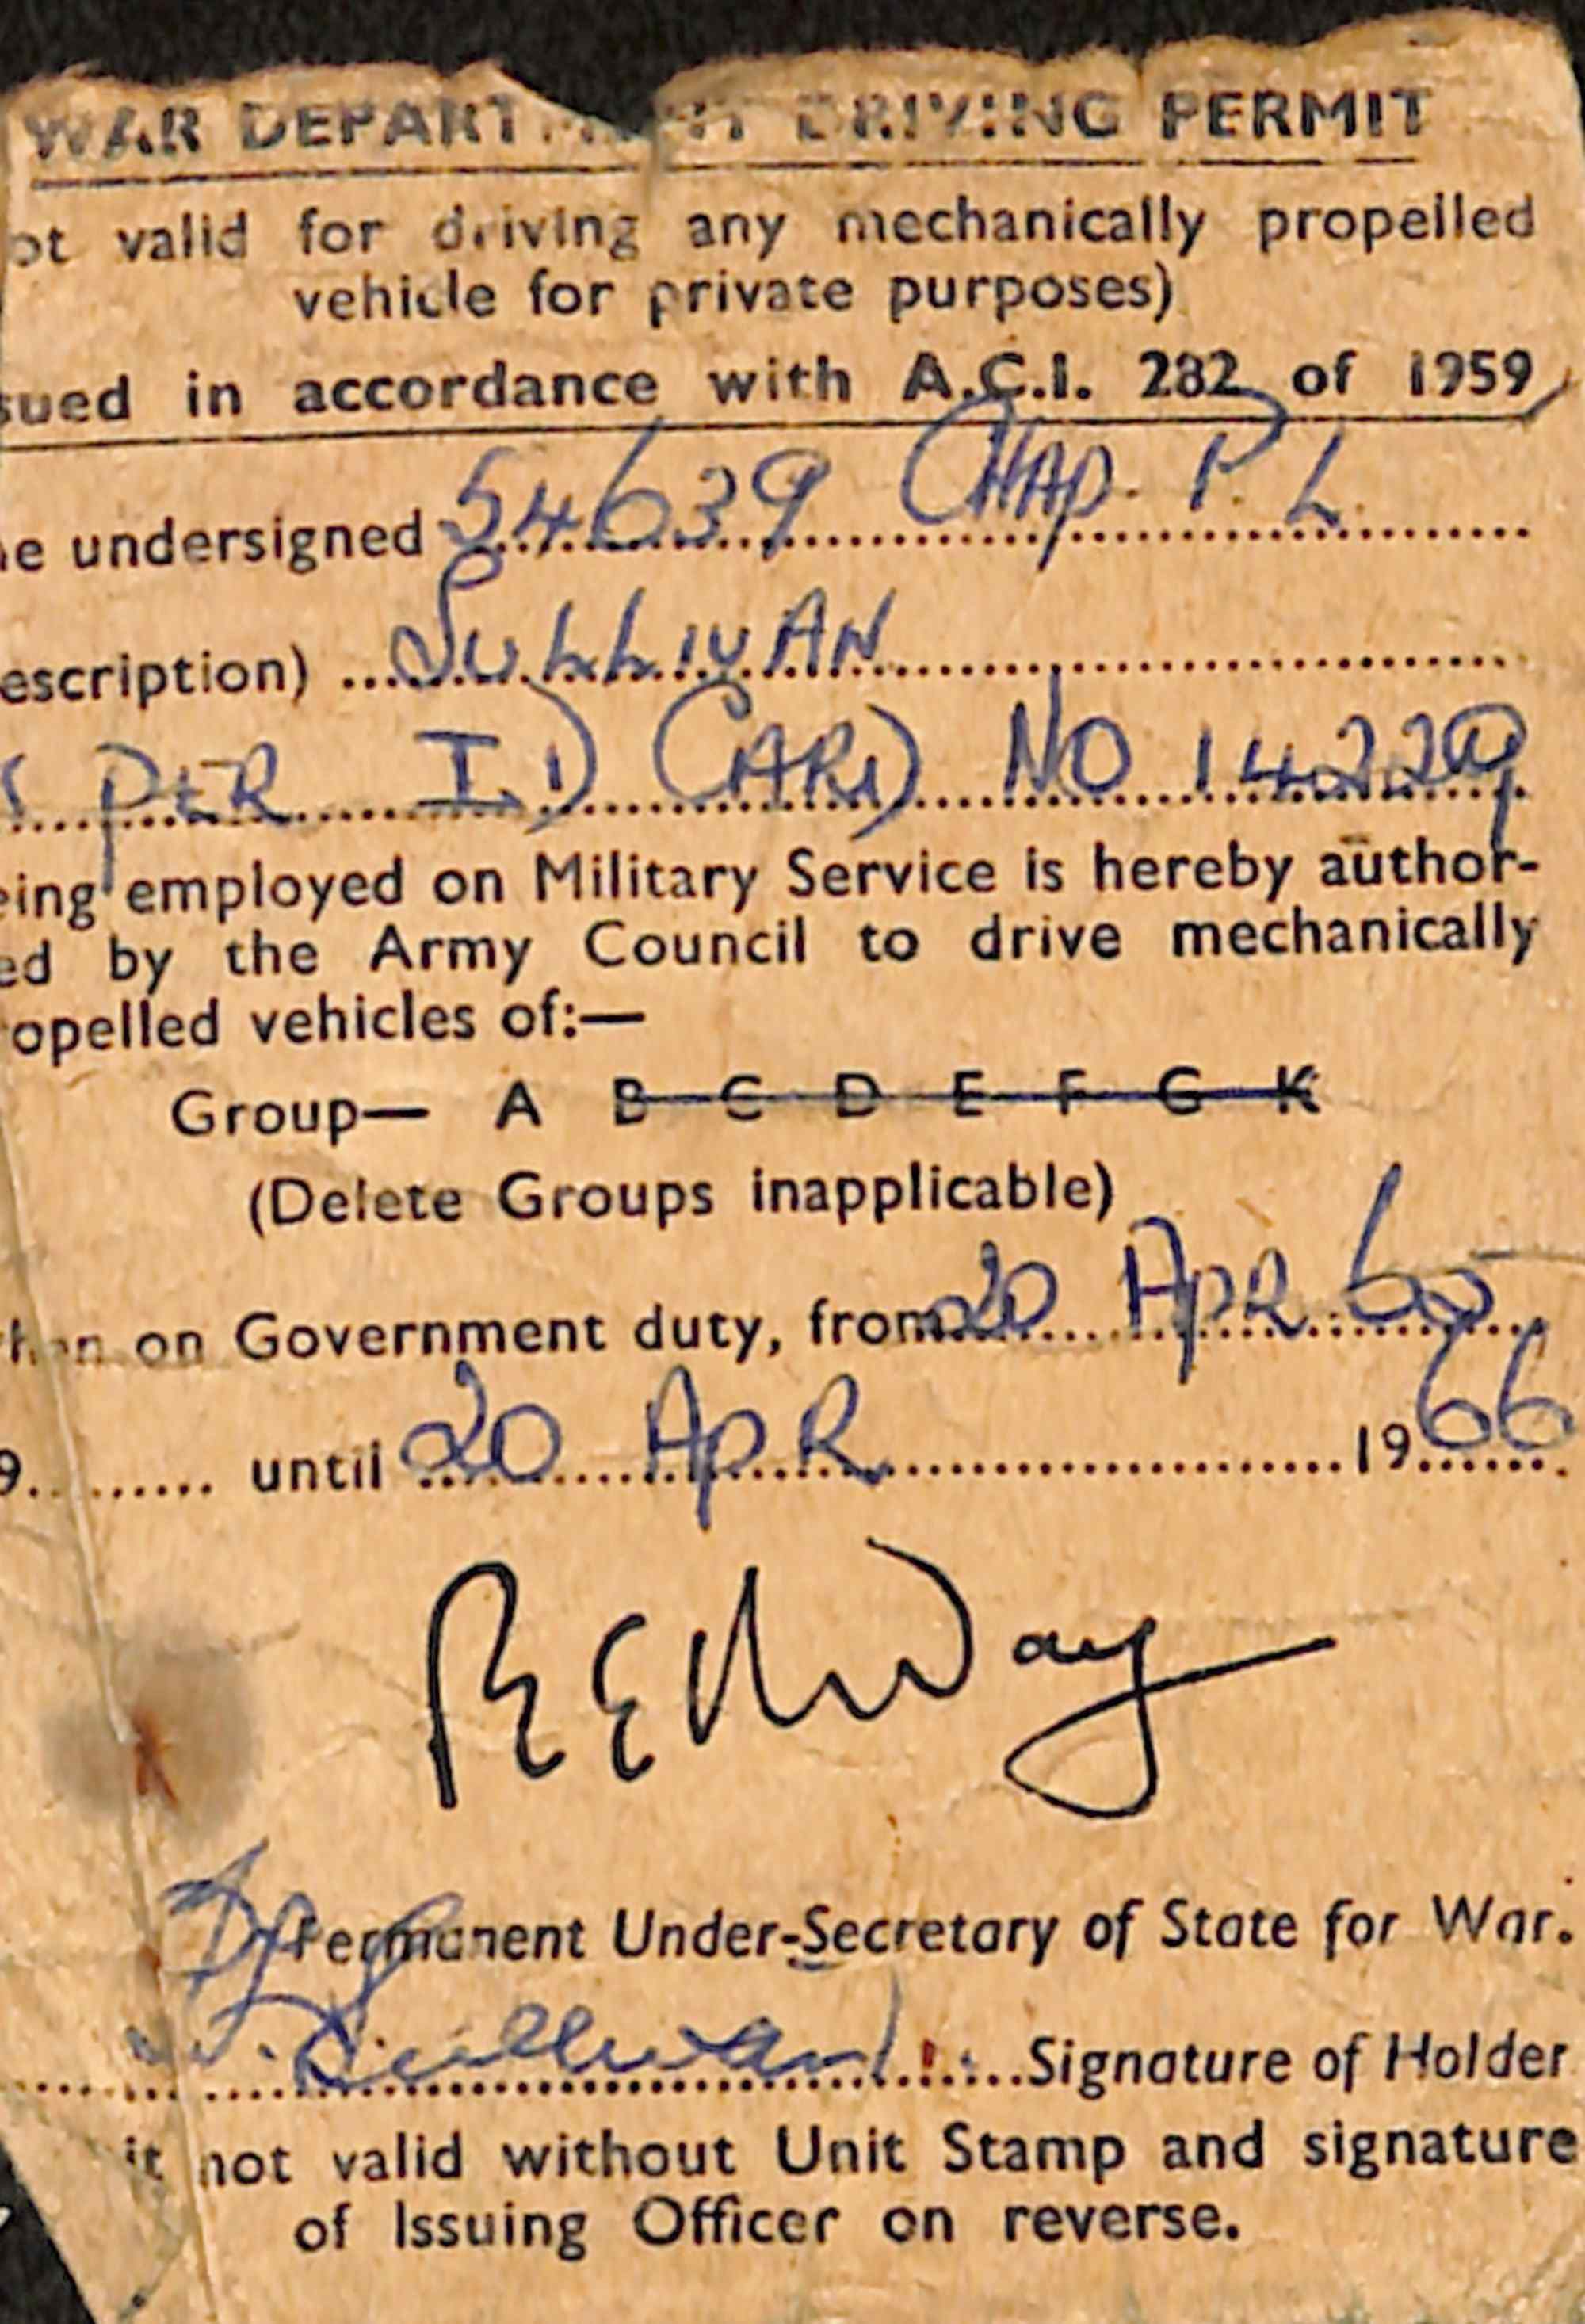 WAR DEPARTMENT DRIVING PERMIT
ot valid for driving any mechanically propelled
vehicle for private purposes)
sued in accordance with A.C.I. 282 of 1959
e undersigned 54639 CHAP. P. L.
escription) SULLIVAN
PER I.D CARD NO 142299
eing employed on Military Service is hereby author-
ed by the Army Council to drive mechanically
opelled vehicles of:—
Group— A B C D E F G K
(Delete Groups inapplicable)
hen on Government duty, from 20 APR 65
9......... until 20 APR 1966
Permanent Under-Secretary of State for War.
Sullivan Signature of Holder
it not valid without Unit Stamp and signature
of Issuing Officer on reverse.